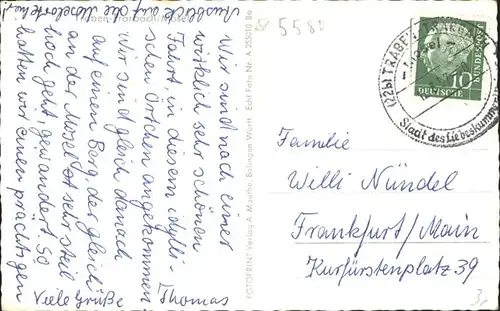 Traben-Trarbach/Mosel
Ausblick auf die Moselorte
Wir sind nach einer
wirklich sehr schönen
Fahrt, in diesem idylli-
schen Örtchen angekommen
Wir sind gleich danach
auf einen Berg der gleich
an der Mosel ist sehr steil
hoch geht, gewandert. So
hatten wir einen prächtigen
Viele Grüße
Thomas
FOTOPRINT Verlag A. Mauthe, Bisingen Württ. Echt Foto Nr. A 255010 Be
5580
(22b) TRABEN-TRARBACH
Stadt des Liebeskummer
10
DEUTSCHE
BUNDESPOST
Familie
Willi Nündel
Frankfurt/Main
Kurfürstenplatz 39
3,-